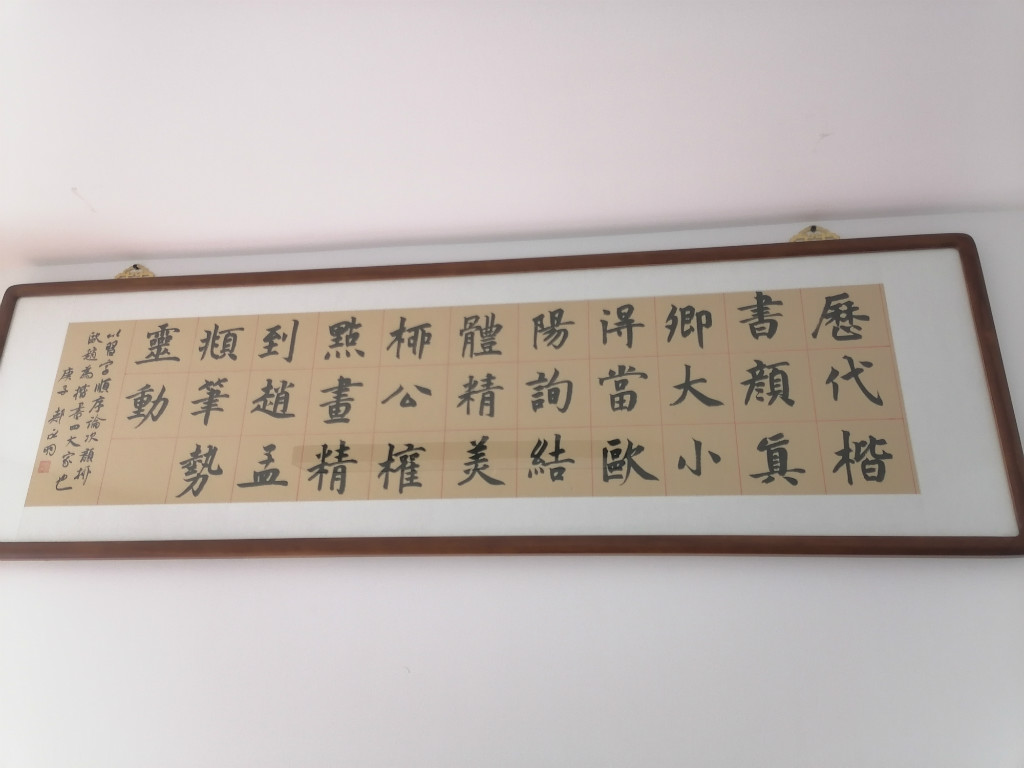 歷代楷
書顔真
卿大小
得當歐
陽詢結
體精美
柳公權
點畫精
到趙孟
頫筆勢
靈動
以習字順序論次顔柳
歐趙為楷書四大家也
庚子